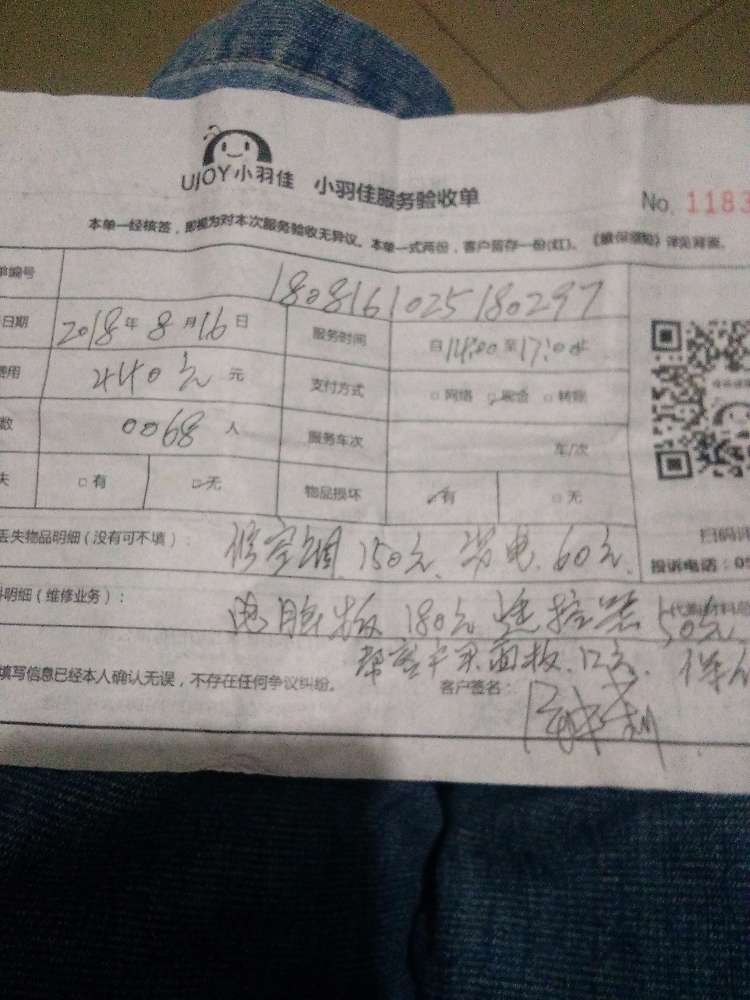 UJOY小羽佳 小羽佳服务验收单
No. 1183
本单一经核签，即视为对本次服务验收无异议。本单一式两份，客户留存一份(红)。《维保须知》详见背面。
单编号 1808161025180297
日期 2018年8月16日 服务时间 自14:00至17:00
费用 440元 元 支付方式 □网络 ☑现金 □转账
数 0068 人 服务车次 车/次
失 □有 ☑无 物品损坏 ☑有 □无
扫码评
丢失物品明细（没有可不填）： 修空调 150元、 60元、
投诉电话：05
料明细（维修业务）： 电脑板 180元 遥控器 50元
面板、
填写信息已经本人确认无误，不存在任何争议纠纷。 客户签名：